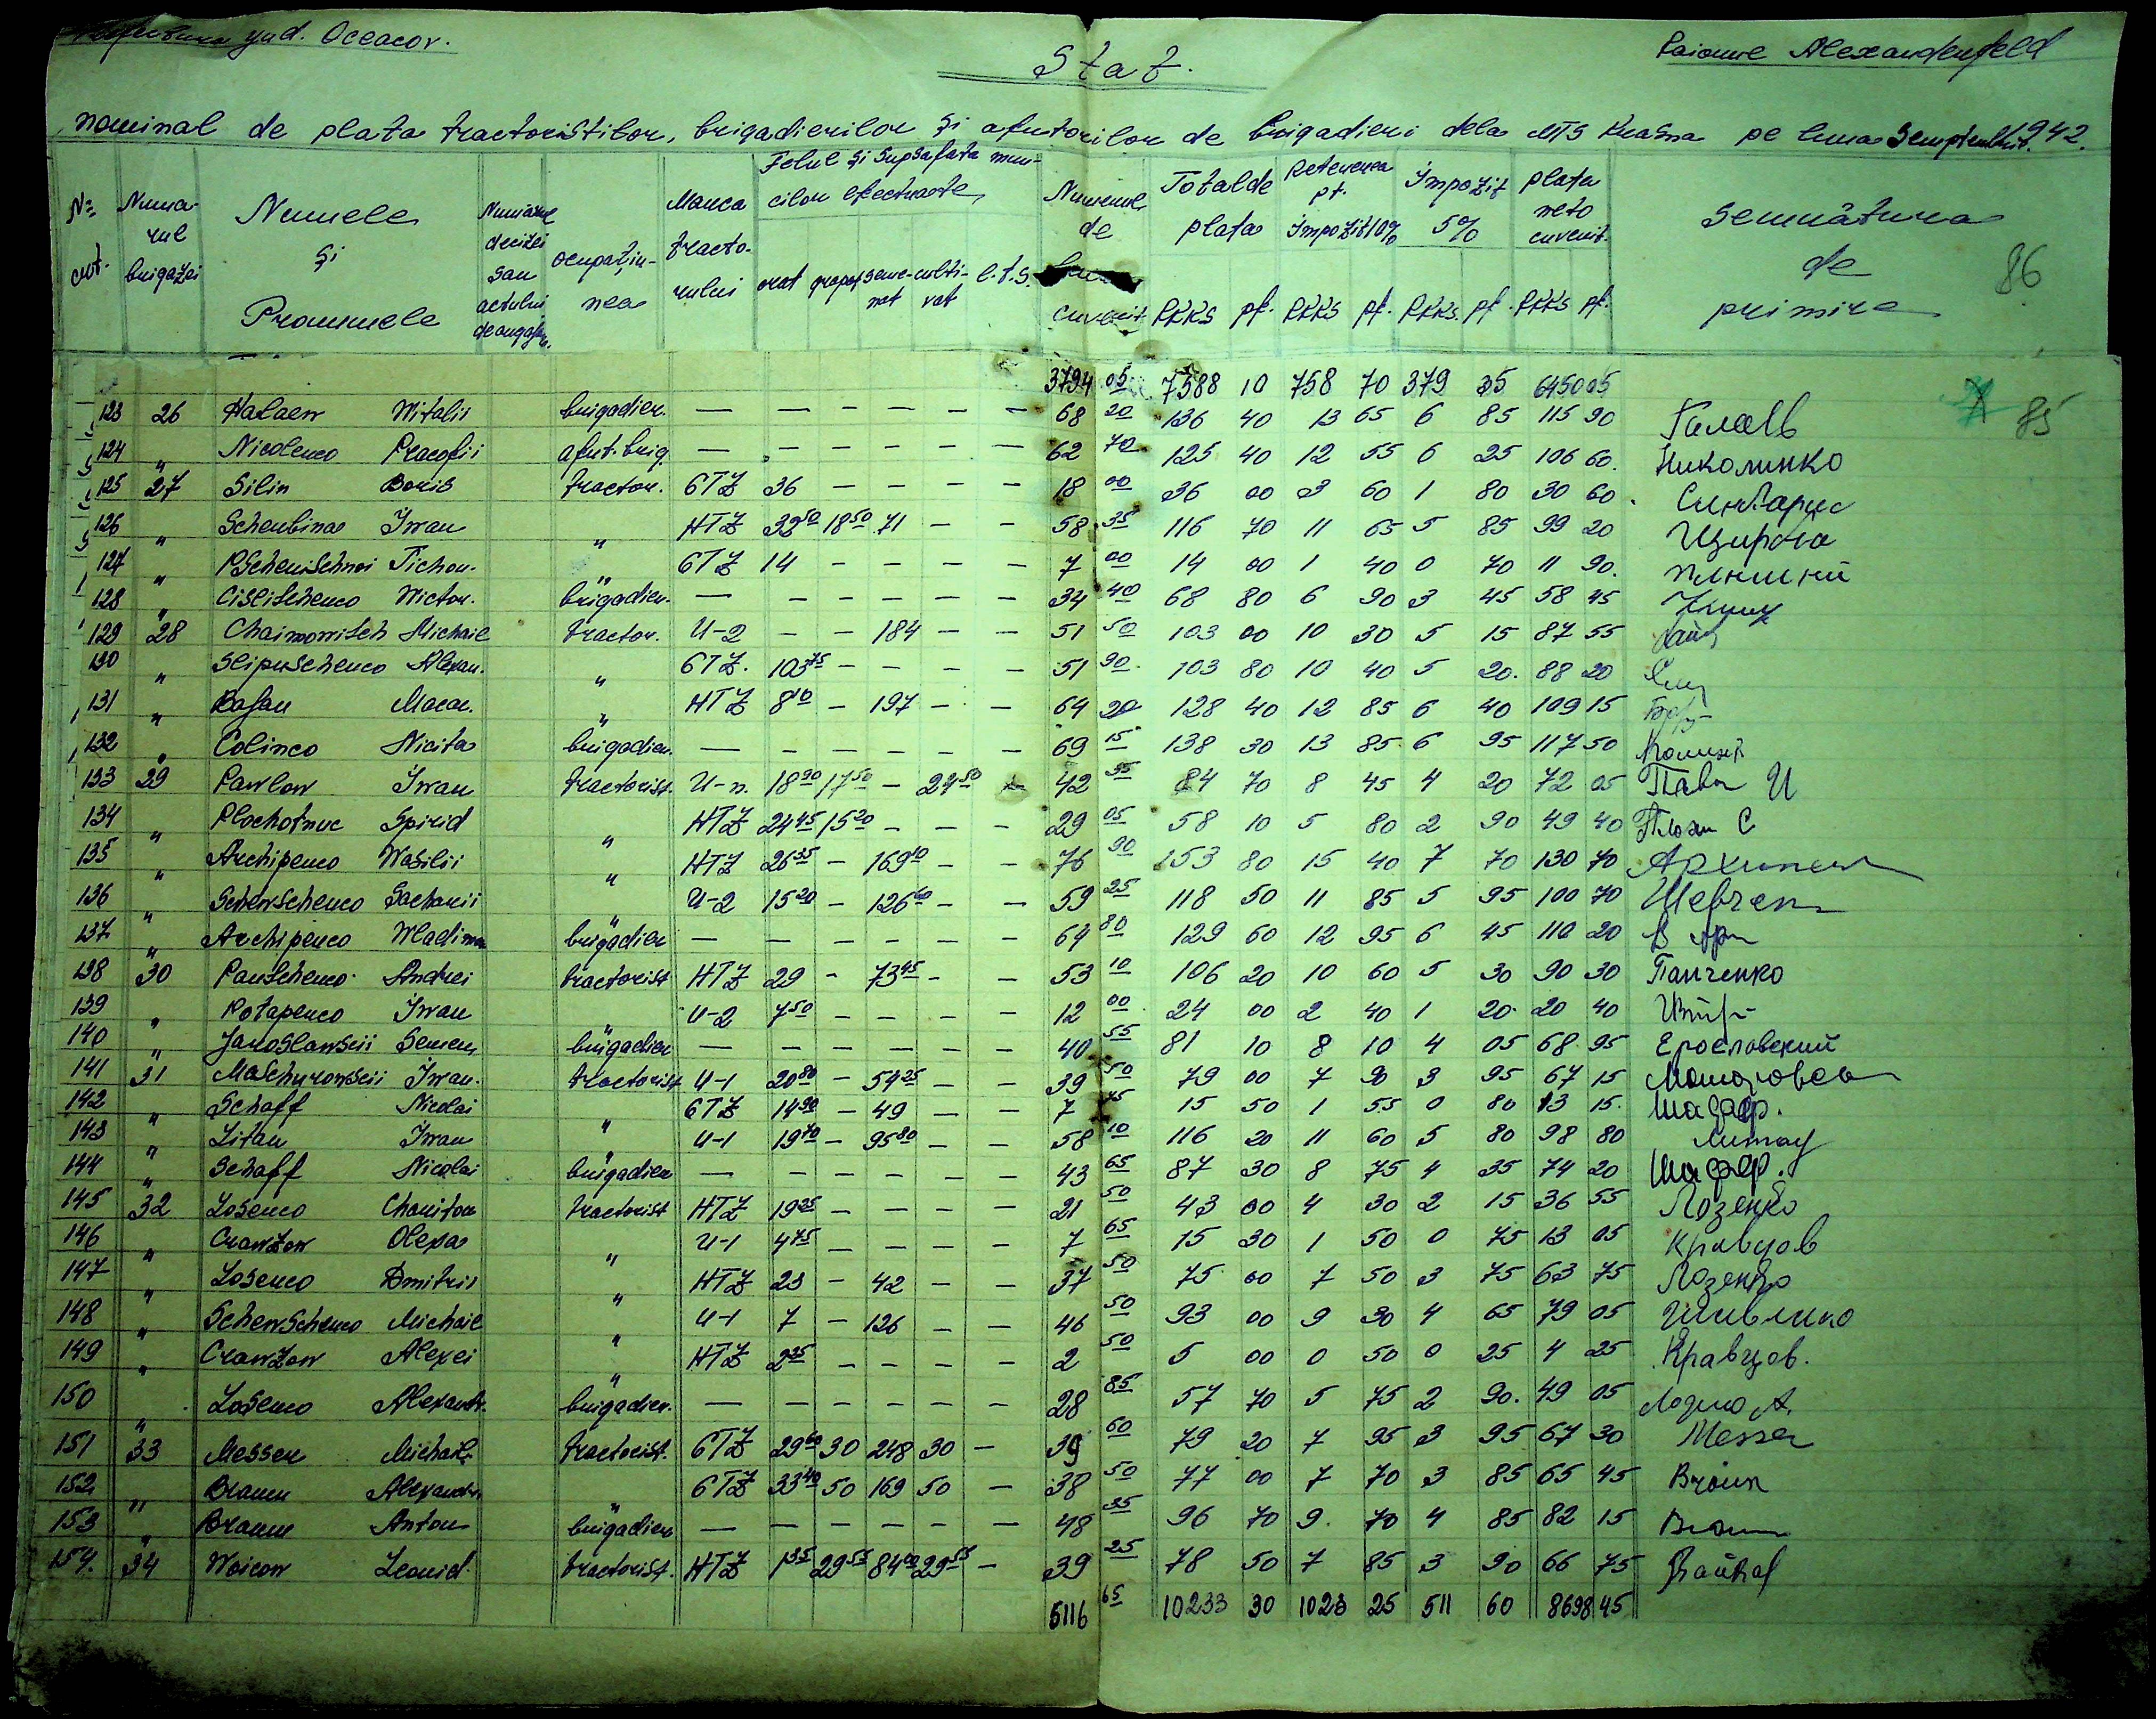 jud. Oceacov.
Stat.
Raionul Alexandenfeld
nominal de plata tractoristilor, brigadierilor și ajutorilor de brigadieri dela MTS pe luna Semptembrie 1942.
№ crt. Numarul brigazei Numele și Pronumele Numărul deciziei sau actului de angajare ocupațiunea Marca tractorului Felul și Supsafata muncilor efectuate arat grapat semenat cultivat C.T.S. Numerul de cuvenit Total de plata RKKS pf. Retenerea pt. Impozit 10% RKKS pf. Impozit 5% RKKS. pf. plata neto cuvenit. RKKS pf. Semnătura de primire 86
3794 05 7588 10 758 70 379 35 6450 05
85
123 26 Halaew Witalii brigadier. — — — — — — 68 20 136 40 13 65 6 85 115 90 Галаев
124 " Nicolenco Pracofii ajut. brig. — — — — — — 62 70 125 40 12 55 6 25 106 60. Николинко
125 27 Silin Boris tractor. СТZ 36 — — — — 18 00 36 00 3 60 1 80 30 60.
126 " Scherbina Iwan " HTZ 32 50 18 50 71 — — 58 35 116 70 11 65 5 85 99 20
127 " Pschenischnoi Tichon. " СТZ 14 — — — — 7 00 14 00 1 40 0 70 11 90.
128 " Cislitchenco Wictor. brigadier. — — — — — — 34 40 68 80 6 90 3 45 58 45
129 28 Chaimowitsch Michail tractor. U-2 — — 184 — — 51 50 103 00 10 30 5 15 87 55
130 " Slipuschenco Alexan. " СТZ. 103 75 — — — — 51 90 103 80 10 40 5 20. 88 20
131 " Bajan Macar. " HTZ 8 10 — 197 — — 64 20 128 40 12 85 6 40 109 15
132 " Colinco Nicita brigadier. — — — — — — 69 15 138 30 13 85 6 95 117 50
133 29 Pawlow Iwan tractorist. U-n. 18 90 17 50 — 29 50 — 42 35 84 70 8 45 4 20 72 05 Павл И
134 " Plochotnuc Spirid " HTZ 24 45 15 20 — — — 29 05 58 10 5 80 2 90 49 40 Плохи С
135 " Archipenco Wasilii " HTZ 26 35 — 169 10 — — 76 90 153 80 15 40 7 70 130 70 Архипен
136 " Schewschenco Sacharii " U-2 15 20 — 126 60 — — 59 25 118 50 11 85 5 95 100 70 Шевчен
137. " Archipenco Wladimir brigadier — — — — — — 64 80 129 60 12 95 6 45 110 20 В Арх
138 30 Panschenco Andrei tractorist HTZ 29 — 73 45 — — 53 10 106 20 10 60 5 30 90 30 Панченко
139 " Potapenco Iwan " U-2 7 50 — — — — 12 00 24 00 2 40 1 20 20 40
140 " Jaroslawscii Semen brigadier — — — — — — 40 55 81 10 8 10 4 05 68 95 Ерославский
141 31 Maschurowscii Iwan. tractorist U-1 20 80 — 54 25 — — 39 50 79 00 7 90 3 95 67 15
142 " Schaff Nicolai " СТZ 14 90 — 49 — — 7 75 15 50 1 55 0 80 13 15.
143 " Litau Iwan " U-1 19 70 — 95 80 — — 58 10 116 20 11 60 5 80 98 80 Литау
144 " Schaff Nicolai brigadier — — — — — — 43 65 87 30 8 75 4 35 74 20
145 32 Losenco Chariton tractorist HTZ 19 25 — — — — 21 50 43 00 4 30 2 15 36 55 Лозенко
146 " Crawzow Olexa " U-1 4 75 — — — — 7 65 15 30 1 50 0 75 13 05 Кравцов
147 " Losenco Dmitrii " HTZ 23 — 42 — — 37 50 75 00 7 50 3 75 63 75 Лозенко
148 " Schewschenco Michail " U-1 7 — 126 — — 46 50 93 00 9 30 4 65 79 05
149 " Crawzow Alexei " HTZ 2 25 — — — — 2 50 5 00 0 50 0 25 4 25 Кравцов.
150 " Losenco Alexandr. brigadier. — — — — — — 28 85 57 70 5 75 2 90. 49 05
151 33 Messer Michail tractorist. СТZ 29 60 30 248 30 — 39 60 79 20 7 95 3 95 67 30 Messer
152 " Braun Alexandr. " СТZ 33 40 50 169 50 — 38 50 77 00 7 70 3 85 65 45 Braun
153 " Braun Anton brigadier — — — — — — 48 35 96 70 9. 70 4 85 82 15 Braun
154. 34 Woicow Leonid. tractorist. HTZ 1 35 29 55 84 00 29 55 — 39 25 78 50 7 85 3 90 66 75
5116 65 10233 30 1023 25 511 60 8698 45